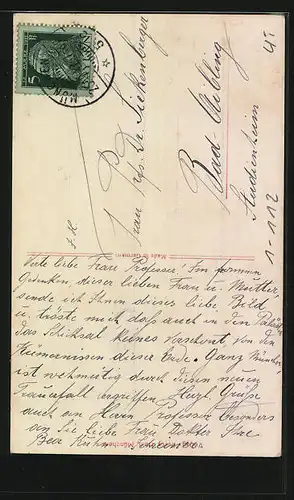 5
Frau Prof. Dr. Sickenberger
Bad Aibling
Studienheim
45
1-112
Made in Germany
Sehr liebe Frau Professor! Im
Gedenken dieser lieben Frau u. Mutter
sende ich Ihnen dieses liebe Bild
u. tröste mich daß auch in den Paläst
das Schicksal keines verschont, von den
Kümernissen dieser Erde. Ganz München
ist wehmütig durch diesen neuen
Trauerfall ergriffen. Herzl. Grüße
auch an Herrn Professor besonders
an Sie liebe Frau Doktor Ihre
Kuhn